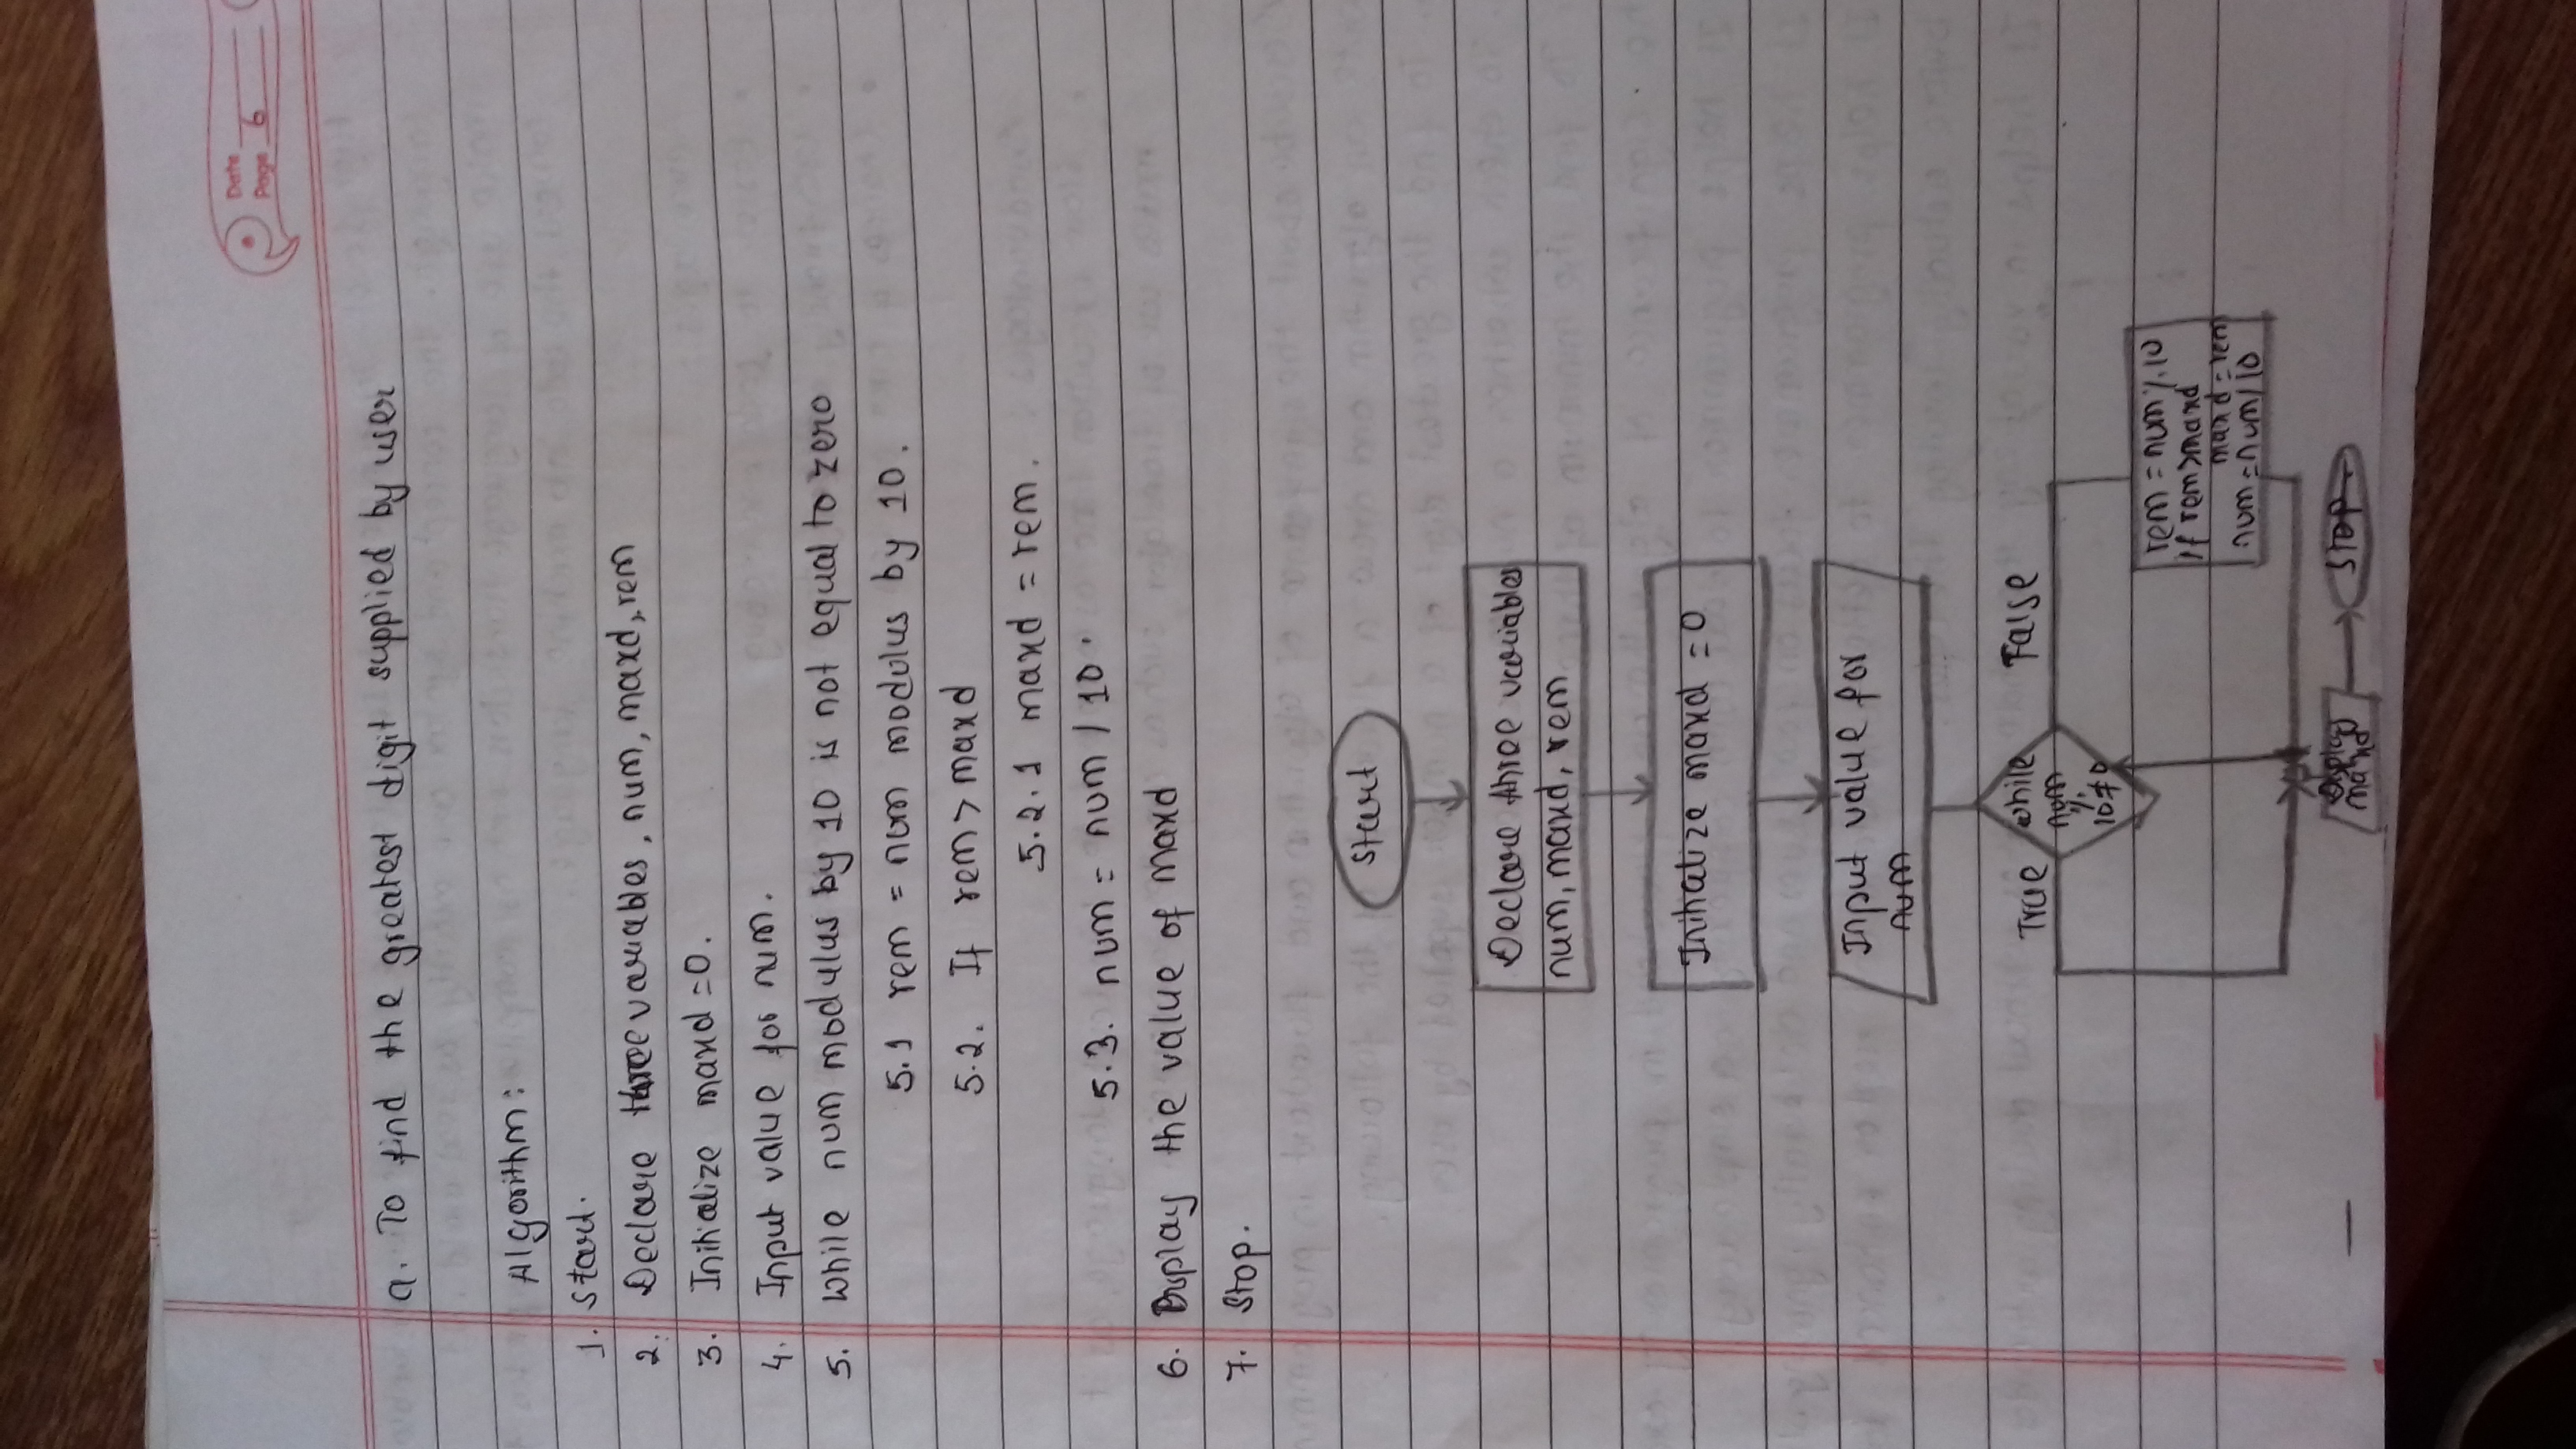 Date
Page 6
a. To find the greatest digit supplied by user
Algorithm:
1. Start.
2. Declare three variables, num, maxd, rem
3. Initialize maxd = 0.
4. Input value for num.
5. While num modulus by 10 is not equal to zero
5.1 rem = num modulus by 10.
5.2. If rem > maxd
5.2.1 maxd = rem.
5.3. num = num / 10.
6. Display the value of maxd
7. Stop.
Start
Declare three variables
num, maxd, rem
Initialize maxd = 0
Input value for
num
True
while
num
%
10≠0
False
rem = num % 10
if rem>maxd
maxd = rem
num = num/10
Display
maxd
Stop